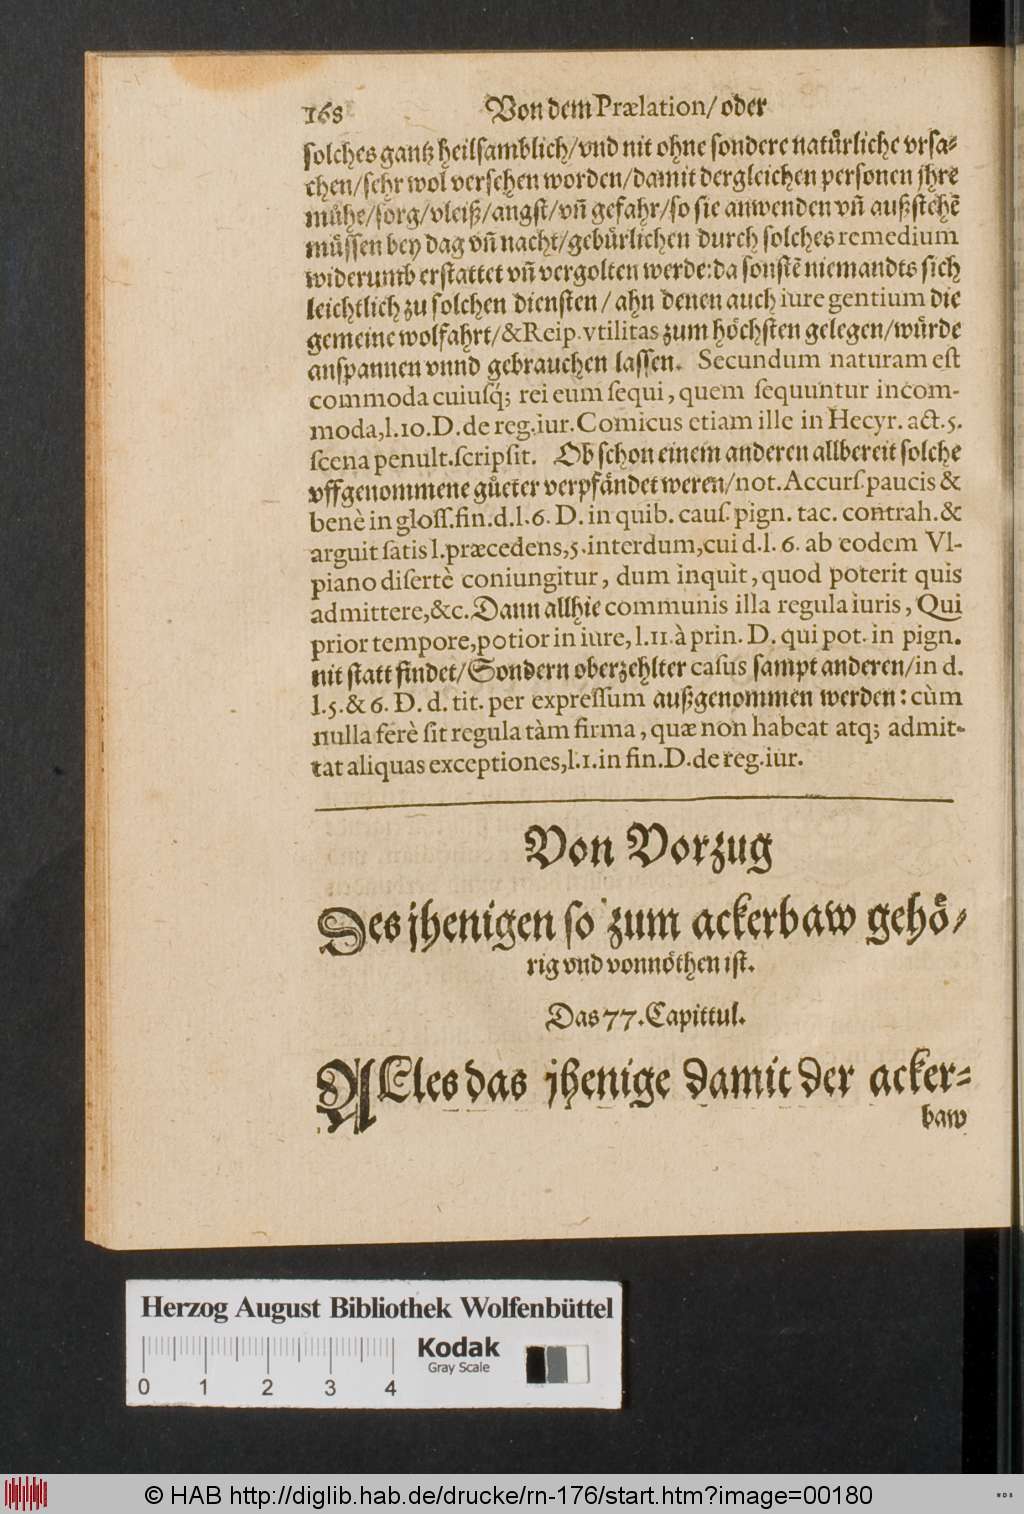 168 Von dem Prælation/ oder
solches gantz heilsamblich/ vnd nit ohne sondere natuͤrliche vrsa-
chen/ sehr wol versehen worden/ damit dergleichen personen jhrē
muͤhe/ sorg/ vleiß/ angst/ vñ gefahr/ so sie anwenden vñ außstehē
muͤssen bey dag vñ nacht/ gebuͤrlichen durch solches remedium
widerumb erstattet vñ vergolten werde: da sonstē niemandts sich
leichtlich zu solchen diensten/ ahn denen auch iure gentium die
gemeine wolfahrt/ & Reip. vtilitas zum hoͤchsten gelegen/ wuͤrde
anspannen vnnd gebrauchen lassen. Secundum naturam est
commoda cuiusq́; rei eum sequi, quem sequuntur incom-
moda, l. 10. D. de reg. iur. Comicus etiam ille in Hecyr. act. 5.
scena penult. scripsit. Ob schon einem anderen allbereit solche
vffgenommene guͤeter verpfaͤndet weren/ not. Accurs. paucis &
benè in gloss. fin. d. l. 6. D. in quib. caus. pign. tac. contrah. &
arguit satis l. præcedens, 5. interdum, cui d. l. 6. ab eodem Vl-
piano disertè coniungitur, dum inquit, quod poterit quis
admittere, &c. Dann allhie communis illa regula iuris, Qui
prior tempore, potior in iure, l. 11. à prin. D. qui pot. in pign.
nit statt findet/ Sondern oberzehlter casus sampt anderen/ in d.
l. 5. & 6. D. d. tit. per expressum außgenommen werden: cùm
nulla ferè sit regula tàm firma, quæ non habeat atq; admit-
tat aliquas exceptiones, l. 1. in fin. D. de reg. iur.
Von Vorzug
Des jhenigen so zum ackerbaw gehoͤ-
rig vnd vonnoͤthen ist.
Das 77. Capittul.
ALles das jhenige damit der acker-
baw
Herzog August Bibliothek Wolfenbüttel
Kodak
Gray Scale
0 1 2 3 4
© HAB http://diglib.hab.de/drucke/rn-176/start.htm?image=00180